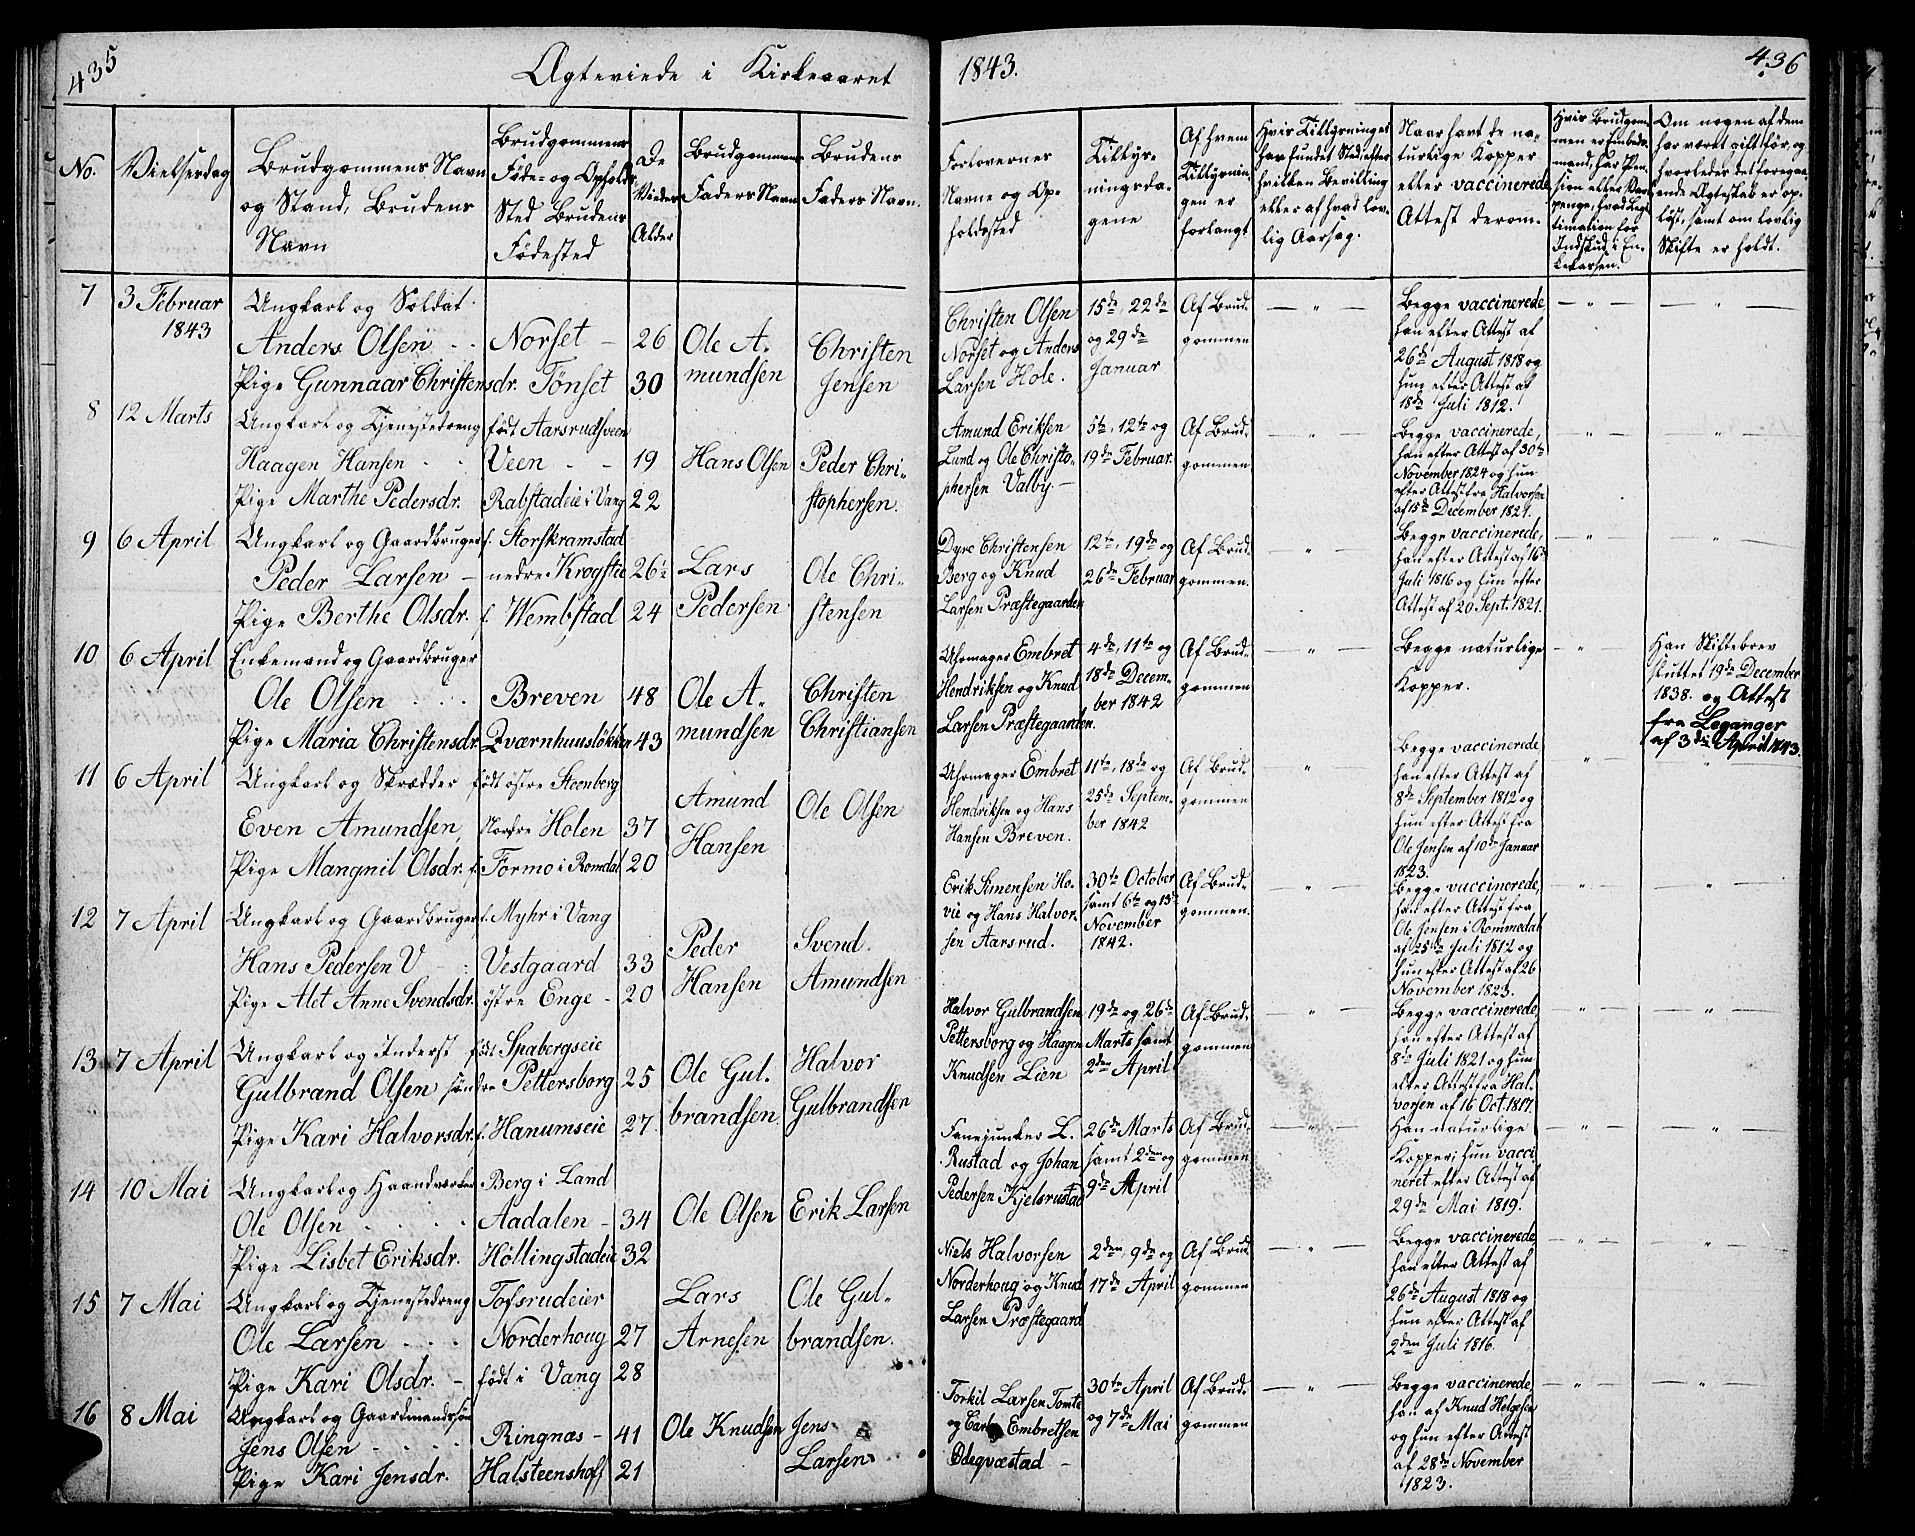 435
Ægteviede i Kirkeaaret
1843.
436
No.
Vielsesdag
Brudgommens Navn
og Stand, Brudens
Navn
Brudgommens
Føde- og Opholds
Sted Brudens
Fødested
De
Viedes
Alder
Brudgommens
Faders Navn
Brudens
Faders Navn.
Forlovernes
Navne og Op-
holdssted
Tillys-
ningsda-
gene
Af hvem
Tillysnin-
gen er
forlangt
Hvis Tillysninges
har fundet Sted, efter
hvilken Bevilling
eller af hvad lov-
lig Aarsag.
Naar havt de na-
turlige Kopper
eller vaccinerede
Attest derom.
Hvis Brudgom-
men er Embeds-
mand, har Pen-
sion eller Var-
penge, hvad Legi
timation for
Indskud i En-
kekassen.
Om nogen af dem
har været gift før, og
hvorledes det foregaa-
ende Ægteskab er op-
løst, samt om lovlig
Skifte er holdt.
7
3 Februar
1843
Ungkarl og Soldat
Anders Olsen
Pige Gunnaar Christensdr.
Norset
Tönset
26
30
Ole A-
mundsen
Christen
Jensen
Christen Olsen
Norset og Anders
Larsen Hole.
15de, 22de
og 29de
Januar
Af Brud-
gommen
Begge vaccinerede
han efter Attest af
26de August 1818 og
hun efter Attest af
18de Juli 1812.
8
12 Marts
Ungkarl og Tjenestedreng
Haagen Hansen
Pige Marthe Pedersdr.
født Aarsrudsveen
Veen
Rabstadeie i Vang
19
22
Hans Olsen
Peder Chri-
stophersen.
Amund Eriksen
Lund og Ole Christo-
phersen Valby.
5te, 12te og
19de Februar.
Af Brud-
gommen
Begge vaccinerede,
han efter Attest af 30te
November 1824 og hun
efter Attest fra Halvorsen
af 15de December 1821.
9
6 April
Ungkarl og Gaardbruger
Peder Larsen
Pige Berthe Olsdr.
f. Storskramstad
nedre Krogstie
f. Wembstad
26½
24
Lars
Pedersen
Ole Chri-
stensen
Dyre Christensen
Berg og Knud
Larsen Præstegaarden
12te, 19de og
26de Februar
Af Brud-
gommen.
Begge vaccinerede,
han efter Attest af 16de
Juli 1816 og hun efter
Attest af 20 Sept. 1821.
10
6 April
Enkemand og Gaardbruger
Ole Olsen
Pige Maria Christensdr.
Breven
Qværnhuusløkken
48
43
Ole A-
mundsen
Christen
Christiansen
Uhrmager Embret
Hendriksen og Knud
Larsen Præstegaarden.
4de, 11te og
18de Decem-
ber 1842
Af Brud-
gommen
Begge naturlige
Kopper.
Han Skiftebrev
sluttet 19de December
1838. og Attest
fra Leganger
af 3de April 1843.
11
6 April
Ungkarl og Skrædder
Even Amundsen,
Pige Mangnil Olsdr.
født östre Steenberg
Nordre Holen
f. Formo i Romdal
37
20
Amund
Hansen
Ole Olsen
Uhrmager Embret
Hendriksen og Hans
Hansen Breven.
11te, 18de og
25de Septem-
ber 1842
Af Brud-
gommen
Begge vaccinerede
han efter Attest af
8de September 1812 og
hun efter Attest fra
Ole Jensen af 10de Januar
1823.
12
7 April
Ungkarl og Gaardbruger
Hans Pedersen V
Pige Alet Anne Svendsdr.
f. Myhr i Vang
Vestgaard
östre Enge
33
20
Peder
Hansen
Svend
Amundsen
Erik Simensen Ho-
vie og Hans Halvor-
sen Aarsrud.
30te October
samt 6te og 13de
November
1842.
Af Brud-
gommen.
Begge vaccinerede,
han efter Attest fra
Ole Jensen i Rommedal
af 25de Juli 1812 og
hun efter Attest af 26
November 1823.
13
7 April
Ungkarl og Inderst
Gulbrand Olsen
Pige Kari Halvorsdr.
født Spabergseie
søndre Pettersborg
f. Hanumseie
25
27.
Ole Gul-
brandsen
Halvor
Gulbrandsen
Halvor Gulbrandsen
Pettersborg og Haagen
Knudsen Lien
19de og 26de
Marts samt
2den April
Af Brud-
gommen
Begge vaccinerede,
han efter Attest af
8de Juli 1821 og hun
efter Attest fra Hal-
vorsen af 16 Oct. 1817.
14
10 Mai
Ungkarl og Haandverker
Ole Olsen
Pige Lisbet Eriksdr.
Berg i Land
Aadalen
Höllingstadeie
34
32
Ole Olsen
Erik Larsen
Fanejunker L.
Rustad og Johan
Pedersen Kjelsrustad
26de Marts
samt 2den og
9de April
Af Brud-
gommen
Han naturlige
Kopper; hun vacci
neret efter Attest af
29de Mai 1819.
15
7 Mai
Ungkarl og Tjenestedreng
Ole Larsen
Pige Kari Olsdr.
Tofsrudeier
Norderhoug
født i Vang
27
28
Lars
Arnesen
Ole Gul-
brandsen.
Niels Halvorsen
Norderhoug og Knud
Larsen Præstegaard
2den, 9de og
17de April
Af Brud-
gommen
Begge vaccinerede
han efter Attest af
26de August 1818 og
hun efter Attest af
2den Juli 1816.
16
8 Mai
Ungkarl og Gaardmandssøn
Jens Olsen
Pige Kari Jensdr.
Ringnæs
Halsteenshoff
41
21
Ole Knudsen
Jens
Larsen
Torkil Larsen Tomte
og Carl Embretsen
Ödeqvæstad
30te April
og 7de Mai
Af Brud-
gommen
Begge vaccinerede
han af Knud Helgesen
og hun efter Attest
af 28de November
1823.